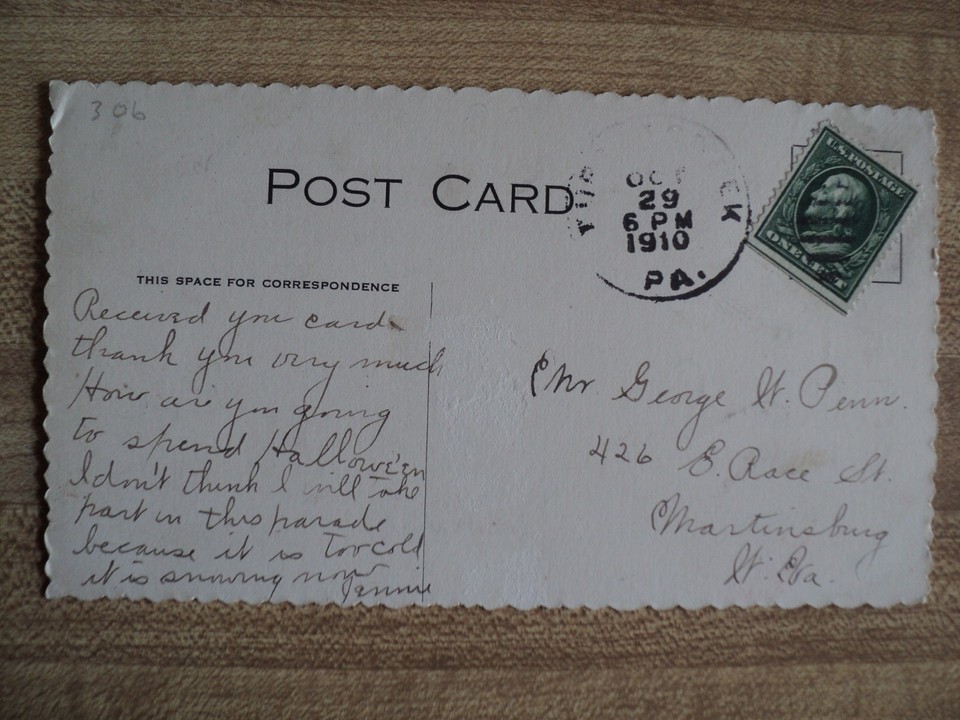 306
POST CARD
OCT
29
6 PM
1910
PA.
U.S. POSTAGE
ONE CENT
THIS SPACE FOR CORRESPONDENCE
Received you card
thank you very much
How are you going
to spend Hallowe'en
I don't think I will take
part in this parade
because it is too cold
it is snowing now
Jennie
Mr George W. Penn.
426 E. Race St.
Martinsburg
W. Va.